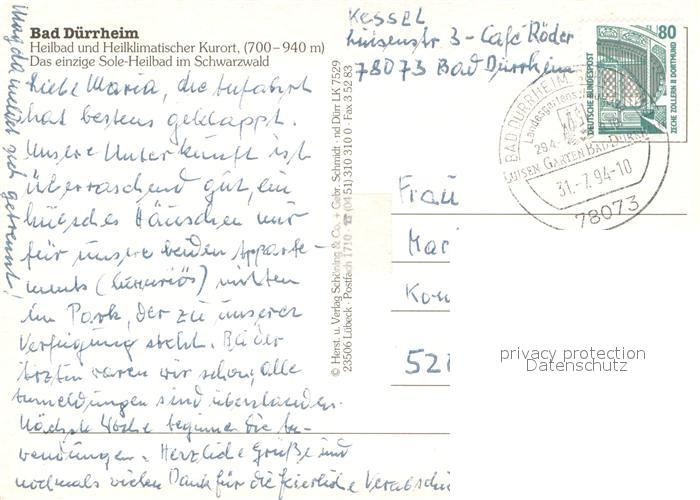 Bad Dürrheim
Heilbad und Heilklimatischer Kurort, (700–940 m)
Das einzige Sole-Heilbad im Schwarzwald
Liebe Maria, die Anfahrt
hat bestens geklappt.
Unsere Unterkunft ist
überraschend gut, ein
hübsches Häuschen nur
für unsere beiden Apparte-
ments (luxuriös) mitten
im Park, der zu unserer
Verfügung steht. Bei der
Ärztin waren wir schon, alle
Anmeldungen sind überstanden.
Nächste Woche beginnen die An-
wendungen. Herzliche Grüße und
nochmals vielen Dank für die feierliche Verabschi
Magda meldet sich getrennt!
© Herst. u. Verlag Schöning & Co. + Gebr. Schmidt · nd Dürr LK 7529
23506 Lübeck · Postfach 1710 ☎ (04 51) 310 310 0 · Fax 3 52 83
KESSEL
Luisenstr 3 - Café Röder
78073 Bad Dürrheim
80
DEUTSCHE BUNDESPOST
ZECHE ZOLLERN II DORTMUND
BAD DÜRRHEIM
Landesgartens
29.4.-
LUISEN GARTEN BAD DÜRR
31.-7.94-10
78073
Frau
Mar
Kon
521
privacy protection
Datenschutz